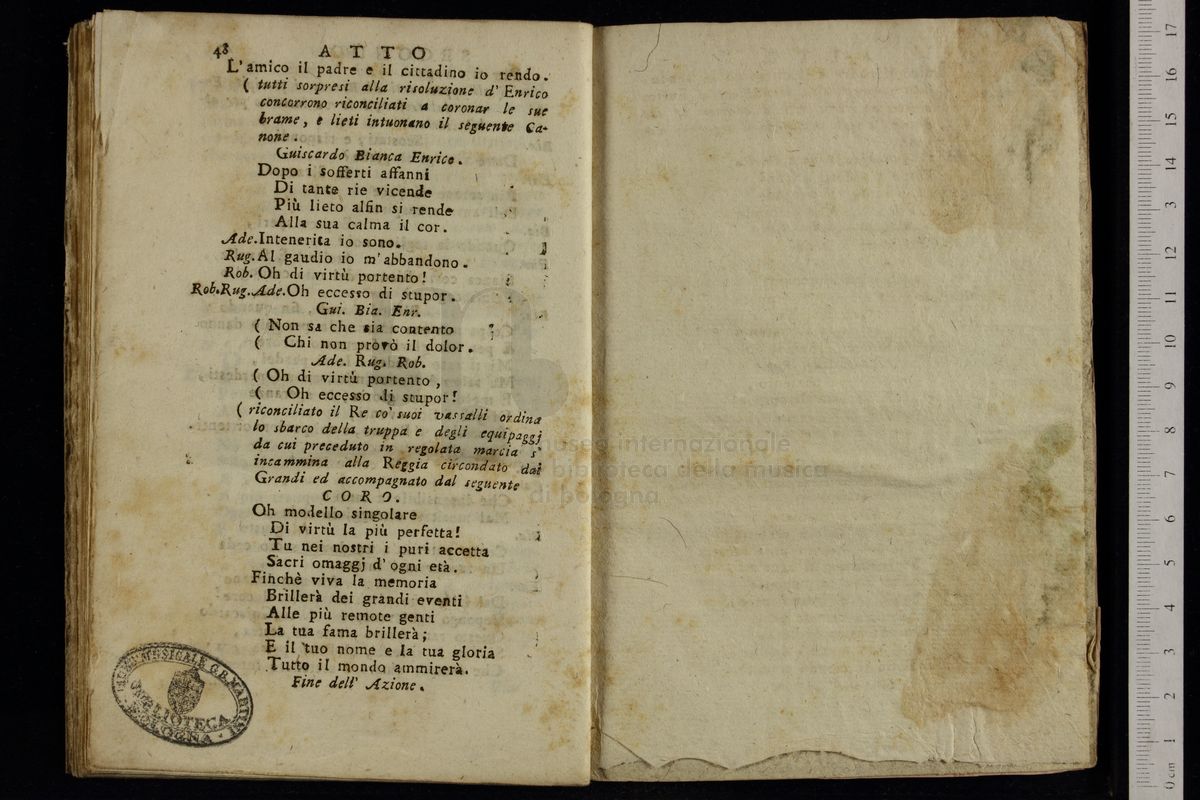 48 ATTO
L'amico il padre e il cittadino io rendo.
( tutti sorpresi alla risoluzione d'Enrico
concorrono riconciliati a coronar le sue
brame, e lieti intuonano il seguente Ca-
none.
Guiscardo Bianca Enrico.
Dopo i sofferti affanni
Di tante rie vicende
Più lieto alfin si rende
Alla sua calma il cor.
Ade. Intenerita io sono.
Rug. Al gaudio io m'abbandono.
Rob. Oh di virtù portento!
Rob. Rug. Ade. Oh eccesso di stupor.
Gui. Bia. Enr.
( Non sa che sia contento
( Chi non provò il dolor.
Ade. Rug. Rob.
( Oh di virtù portento,
( Oh eccesso di stupor!
( riconciliato il Re co' suoi vassalli ordina
lo sbarco della truppa e degli equipaggj
da cui preceduto in regolata marcia s'
incammina alla Reggia circondato dai
Grandi ed accompagnato dal seguente
CORO.
Oh modello singolare
Di virtù la più perfetta!
Tu nei nostri i puri accetta
Sacri omaggj d'ogni età.
Finchè viva la memoria
Brillerà dei grandi eventi
Alle più remote genti
La tua fama brillerà;
E il tuo nome e la tua gloria
Tutto il mondo ammirerà.
Fine dell' Azione.
MUSICALE G.B. MARTINI
BIBLIOTECA
BOLOGNA
museo internazionale
e biblioteca della musica
di bologna
0 cm 1 2 3 4 5 6 7 8 9 10 11 12 13 14 15 16 17